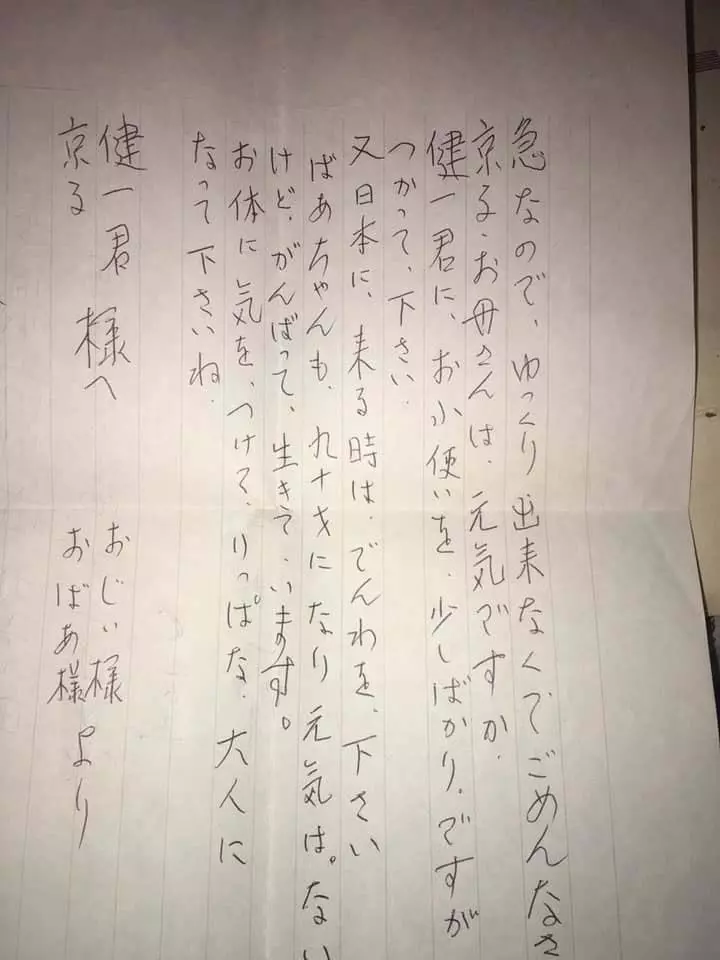 急なので、ゆっくり出来なくでごめんなさ
京る・お母さんは、元気ですか.
健一君に、お小使いを、少しばかり。ですが
つかって、下さい.
又日本に、来る時は、でんわを、下さい
ばあちゃんも、九十才になり元気は。ない
けど、がんばって、生きて、います。
お体に気を、つけて、りっぱな、大人に
なって下さいね.
健一君
京る 様へ
おじい様
おばあ様 より